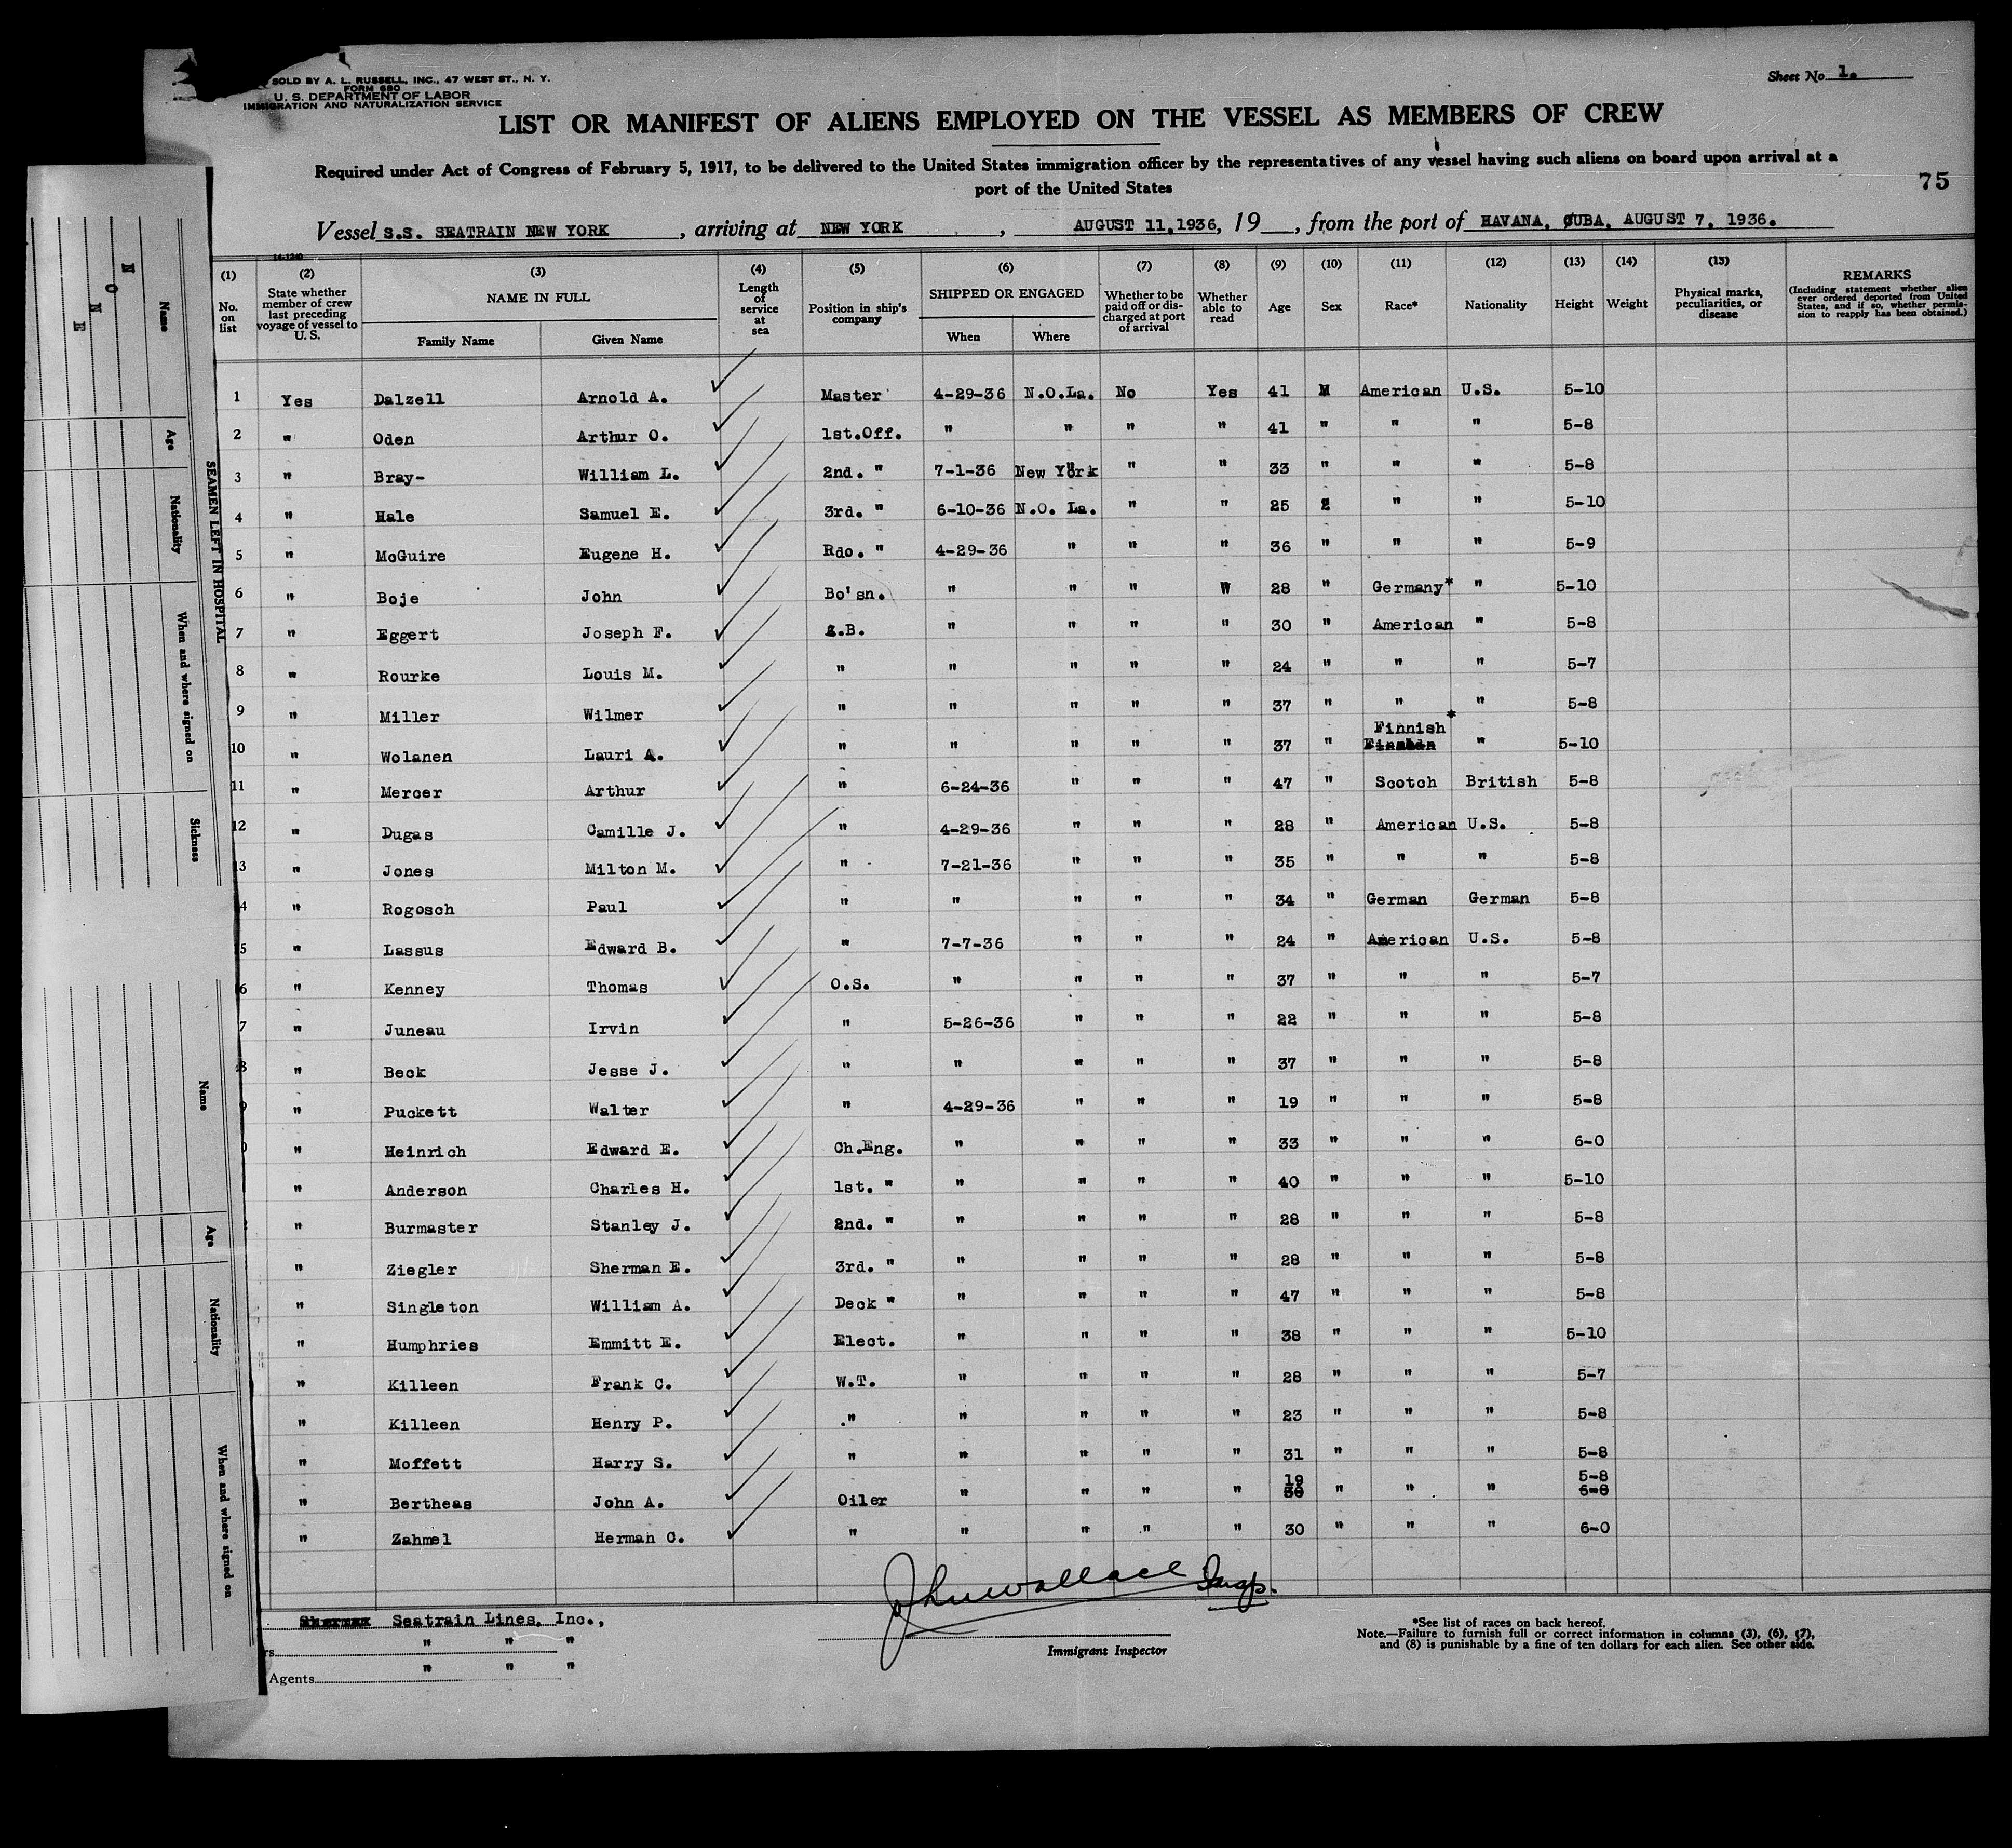 SOLD BY A. L. RUSSELL, INC., 47 WEST ST., N. Y.
FORM 680
U. S. DEPARTMENT OF LABOR
IMMIGRATION AND NATURALIZATION SERVICE
Sheet No. 1.
LIST OR MANIFEST OF ALIENS EMPLOYED ON THE VESSEL AS MEMBERS OF CREW
Required under Act of Congress of February 5, 1917, to be delivered to the United States immigration officer by the representatives of any vessel having such aliens on board upon arrival at a
port of the United States
75
Vessel S.S. SEATRAIN NEW YORK, arriving at NEW YORK, AUGUST 11, 1936, 19__, from the port of HAVANA, CUBA, AUGUST 7, 1936.
14-1240
(1) No. on list
(2) State whether member of crew last preceding voyage of vessel to U. S.
(3) NAME IN FULL Family Name Given Name
(4) Length of service at sea
(5) Position in ship's company
(6) SHIPPED OR ENGAGED When Where
(7) Whether to be paid off or discharged at port of arrival
(8) Whether able to read
(9) Age
(10) Sex
(11) Race*
(12) Nationality
(13) Height
(14) Weight
(15) Physical marks, peculiarities, or disease
REMARKS (Including statement whether alien ever ordered deported from United States, and if so, whether permission to reapply has been obtained.)
1 Yes Dalzell Arnold A. Master 4-29-36 N.O.La. No Yes 41 M American U.S. 5-10
2 " Oden Arthur O. 1st.Off. " " " " 41 " " " 5-8
3 " Bray- William L. 2nd. " 7-1-36 New York " " 33 " " " 5-8
4 " Hale Samuel E. 3rd. " 6-10-36 N.O. La. " " 25 " " 5-10
5 " McGuire Eugene H. Rdo. " 4-29-36 " " " 36 " " " 5-9
6 " Boje John Bo'sn. " " " W 28 " Germany* " 5-10
7 " Eggert Joseph F. A.B. " " " " 30 " American " 5-8
8 " Rourke Louis M. " " " " " 24 " " " 5-7
9 " Miller Wilmer " " " " " 37 " " " 5-8
10 " Wolanen Lauri A. " " " " " 37 " Finnish * " 5-10
11 " Mercer Arthur " 6-24-36 " " " 47 " Scotch British 5-8
12 " Dugas Camille J. " 4-29-36 " " " 28 " American U.S. 5-8
3 " Jones Milton M. " 7-21-36 " " " 35 " " " 5-8
4 " Rogosch Paul " " " " " 34 " German German 5-8
5 " Lassus Edward B. " 7-7-36 " " " 24 " American U.S. 5-8
6 " Kenney Thomas O.S. " " " " 37 " " " 5-7
7 " Juneau Irvin " 5-26-36 " " " 22 " " " 5-8
8 " Beck Jesse J. " " " " " 37 " " " 5-8
9 " Puckett Walter " 4-29-36 " " " 19 " " " 5-8
0 " Heinrich Edward E. Ch.Eng. " " " " 33 " " " 6-0
" Anderson Charles H. 1st. " " " " " 40 " " " 5-10
" Burmaster Stanley J. 2nd. " " " " " 28 " " " 5-8
" Ziegler Sherman E. 3rd. " " " " " 28 " " " 5-8
" Singleton William A. Deck " " " " " 47 " " " 5-8
" Humphries Emmitt E. Elect. " " " " 38 " " " 5-10
" Killeen Frank C. W.T. " " " " 28 " " " 5-7
" Killeen Henry P. " " " " " 23 " " " 5-8
" Moffett Harry S. " " " " " 31 " " " 5-8
" Bertheas John A. Oiler " " " " 19 " " " 5-8
" Zahmel Herman C. " " " " " 30 " " " 6-0
Seatrain Lines, Inc.,
rs " " "
Agents " " "
Jhnwallace Insp.
Immigrant Inspector
*See list of races on back hereof.
Note.—Failure to furnish full or correct information in columns (3), (6), (7),
and (8) is punishable by a fine of ten dollars for each alien. See other side.
SEAMEN LEFT IN HOSPITAL
Name
Age
Nationality
When and where signed on
Sickness
NONE
Name
Age
Nationality
When and where signed on